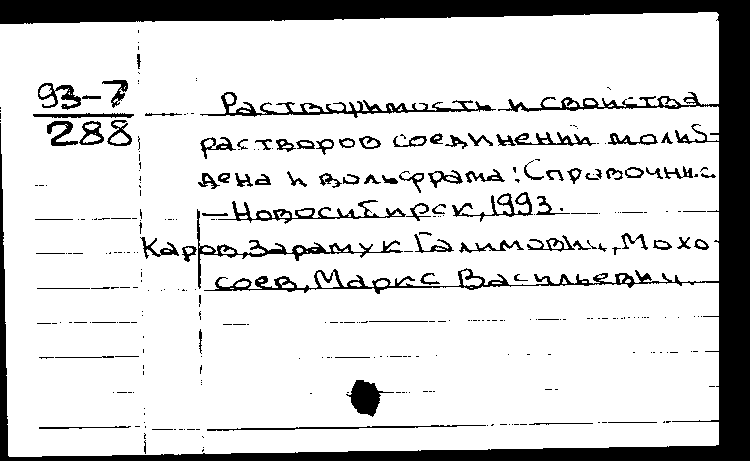 93-7
288
Растворимость и свойства
растворов соединений молиб-
дена и вольфрама: Справочник.
—Новосибирск, 1993.
Каров, Зарамук Галимович, Мохо-
соев, Маркс Васильевич.